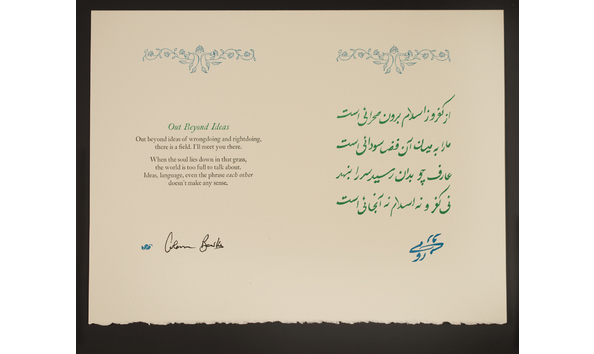 Out Beyond Ideas
Out beyond ideas of wrongdoing and rightdoing,
there is a field. I'll meet you there.
When the soul lies down in that grass,
the world is too full to talk about.
Ideas, language, even the phrase each other
doesn't make any sense.
Coleman Barks
از کفر و ز اسلام برون صحرائی است
ما را به میان آن فضا سودائی است
عارف چو بدان رسید سر را بنهد
نی کفر و نه اسلام نه آنجا جائی است
رومی